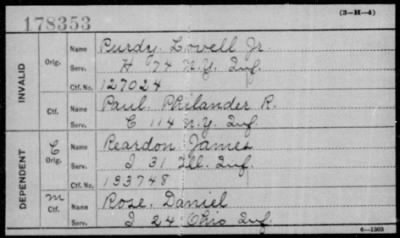 178353
(3-H-4)
INVALID
Orig.
Name Purdy Lovell Jr.
Serv. H 74 N.Y. Inf.
Ctf. No. 127024
Ctf.
Name Paul, Philander R.
Serv. C 114 N.Y. Inf.
DEPENDENT
C
Orig.
Name Reardon James
Serv. I 31 Ill. Inf.
Ctf. No. 133748
m
Ctf.
Name Rose, Daniel
Serv. I 24 Ohio Inf.